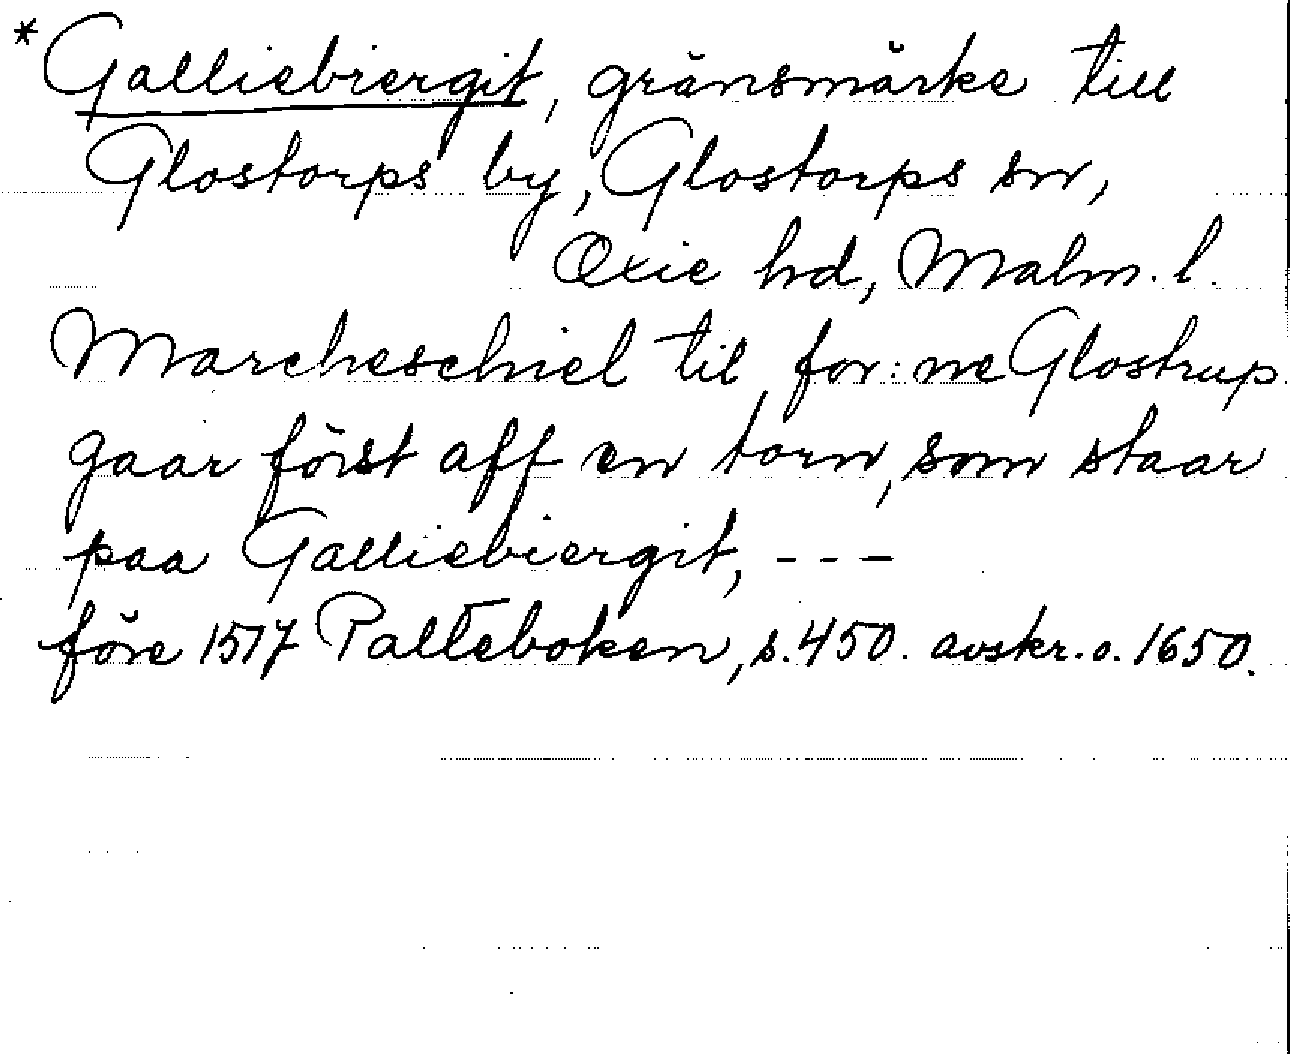 *Galliebiergit, gränsmärke till
Glostorps by, Glostorps sn,
Oxie hd, Malm. l.
Marcheschiel til for:ne Glostrup
gaar först aff en torn, som staar
paa Galliebiergit, - - -
före 1517 Palteboken, s. 450. avskr. o. 1650.